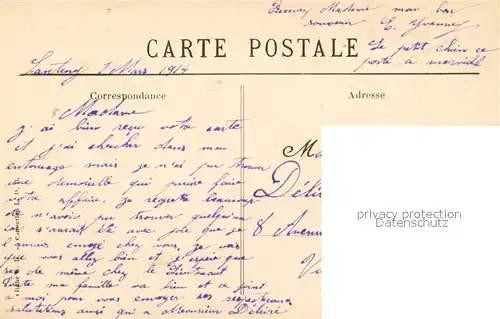 Recevez Madame mon bon
souvenir E. Yvonney
Le petit chien se
porte a merveille
CARTE POSTALE
Nanteuil 1 Mars 1914
Correspondance
Adresse
Madame
j'ai bien reçu votre carte
et j'ai chercher dans mon
entourage mais je n'ai pu trouver
une demoiselle qui puisse faire
votre affaire. Je regrette beaucoup
de n'avois pu trouver quelqu'un
car s'aurait ete avec joie que je
l'aurais envoyé chez vous, je vois
que vous allez bien et j'espère que
ses de même chez le Lieutenant
Toute ma famille va bien et ce joint
a moi pour vous envoyer ses respectueuses
salutations ainsi qu'a Monsieur Déliré
Délir
8 Avenu
privacy protection
Datenschutz